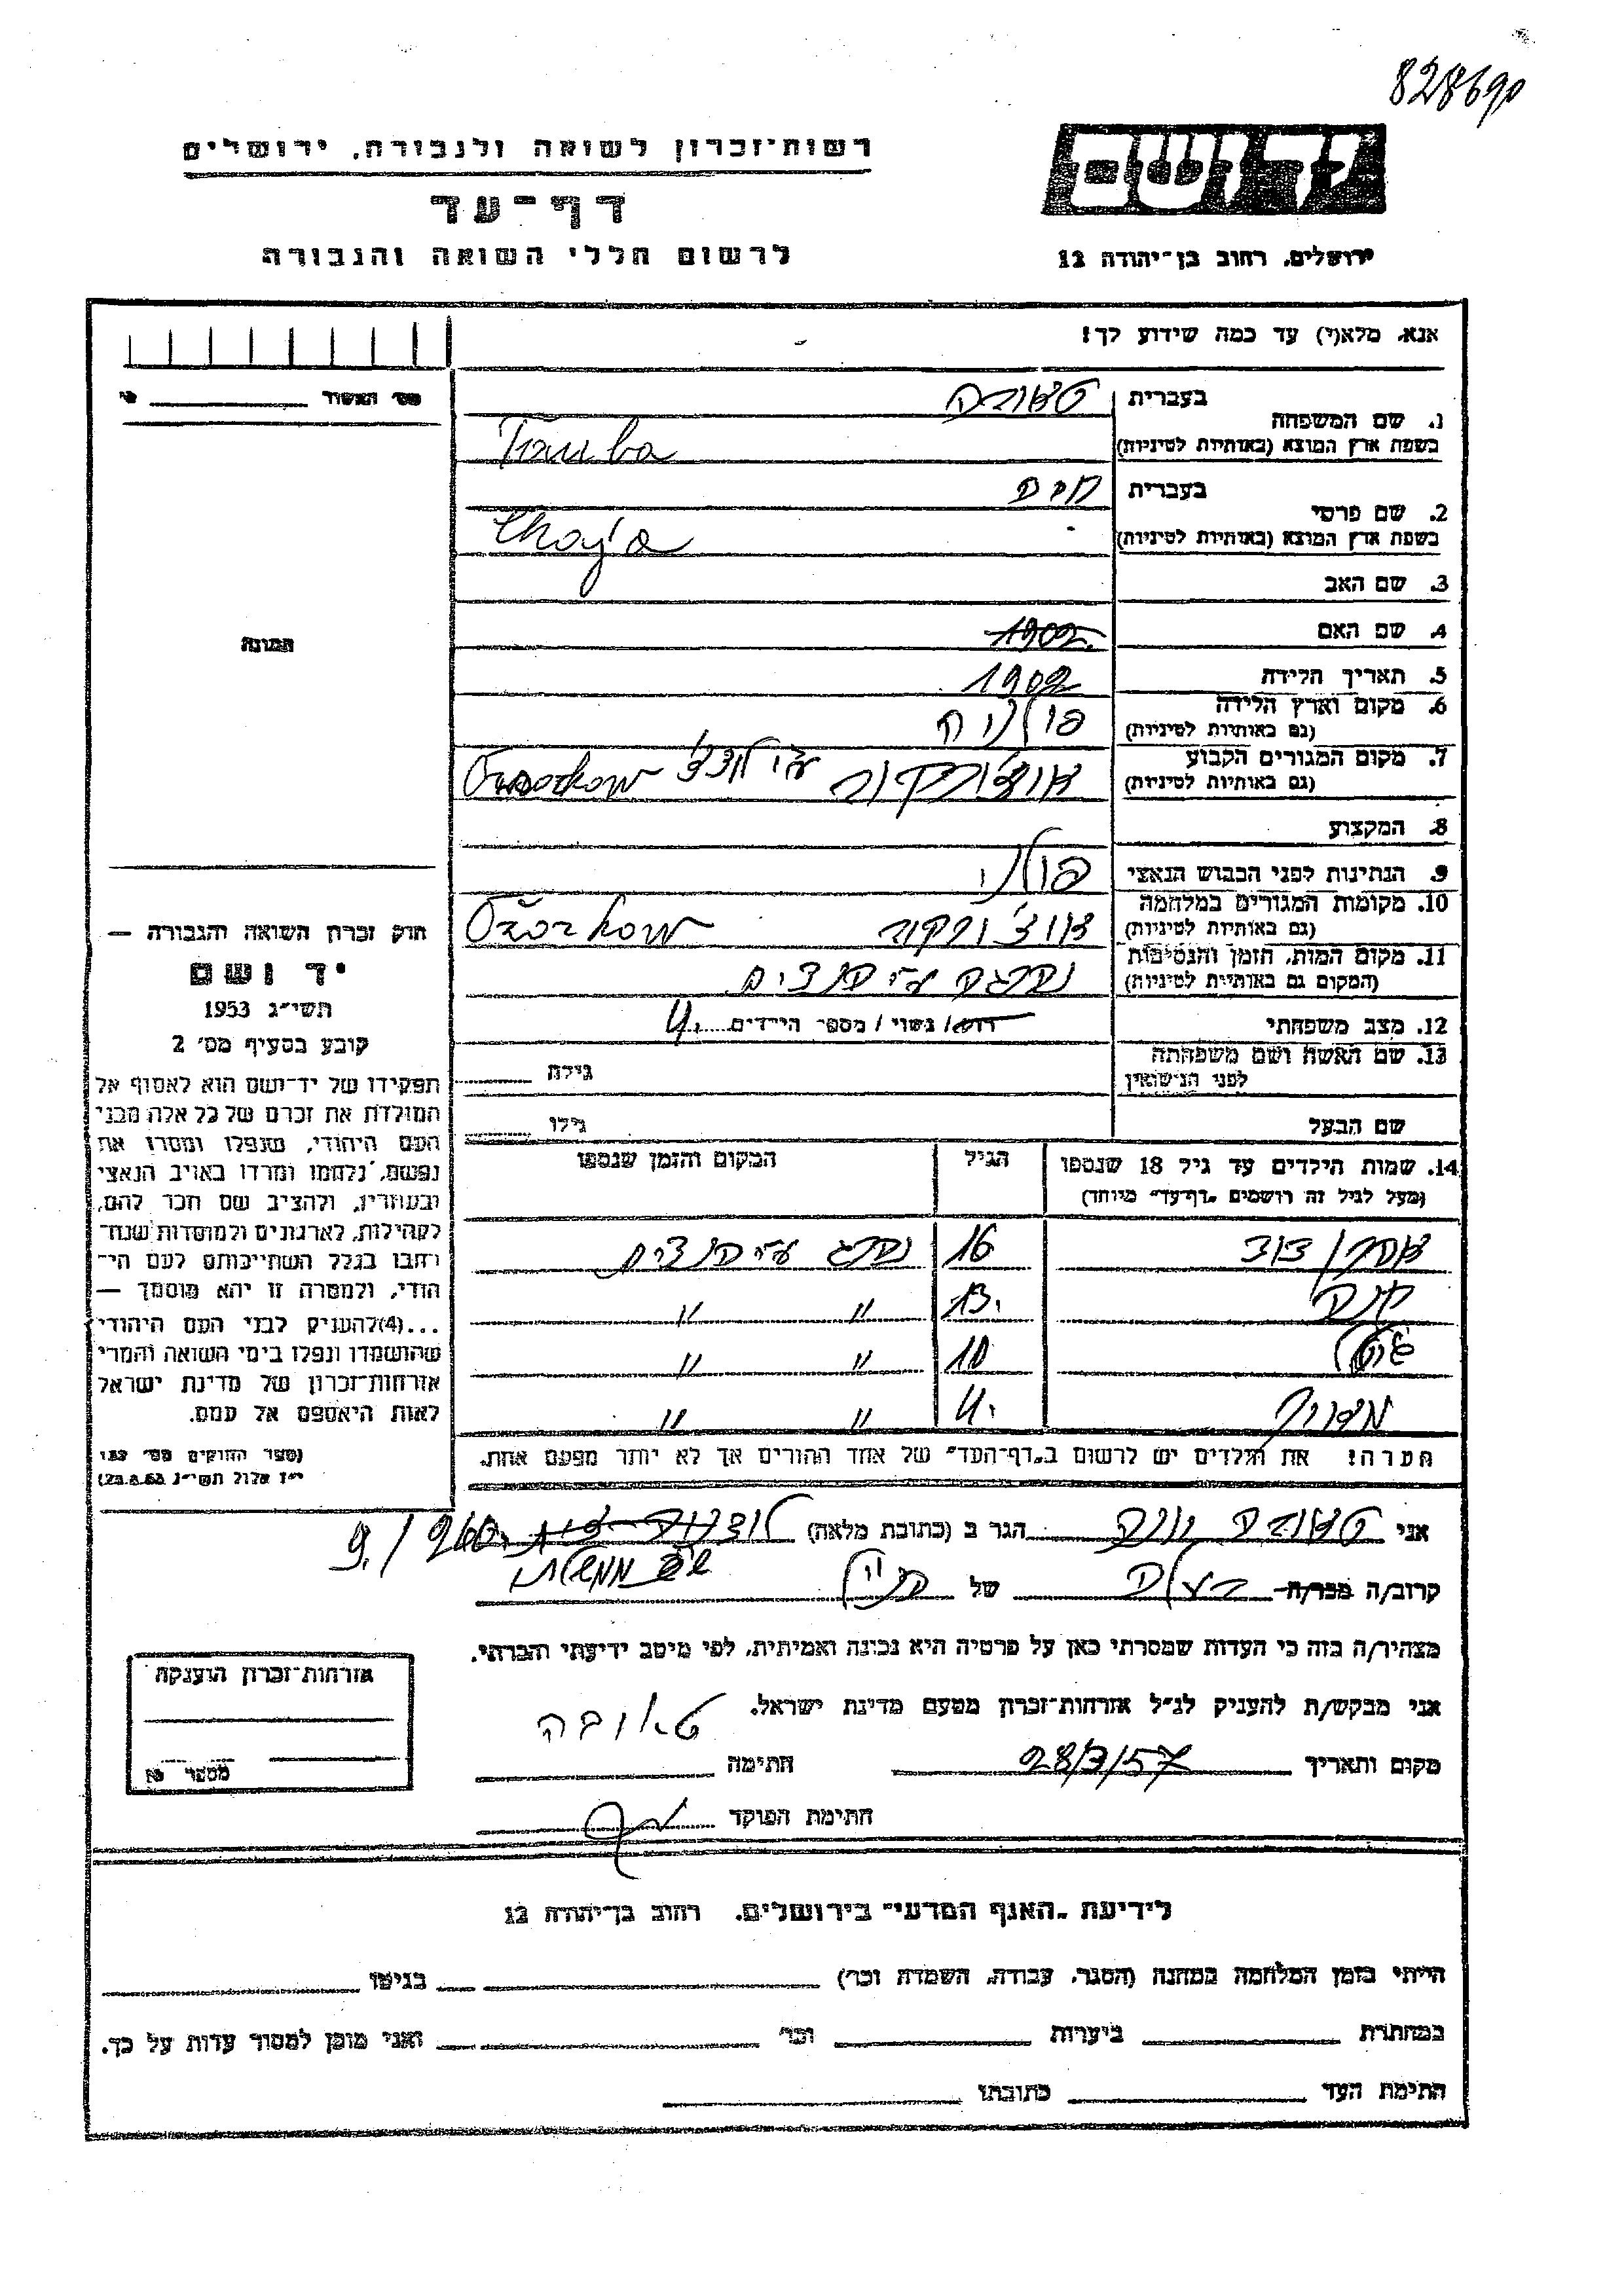 82869p
רשות־זכרון לשואה ולגבורה, ירושלים
דף־עד
לרשום חללי השואה והגבורה
יד ושם
ירושלים, רחוב בן־יהודה 12
אנא, מלא(י) עד כמה שידוע לך!
מס׳ האשור
1. שם המשפחה בעברית טאובה
בשפת ארץ המוצא (באותיות לטיניות) Tauba
2. שם פרטי בעברית חיה
בשפת ארץ המוצא (באותיות לטיניות) Chaja
3. שם האב
4. שם האם 1902
5. תאריך הלידה 1902
6. מקום וארץ הלידה פולניה
(גם באותיות לטיניות)
7. מקום המגורים הקבוע אוזורקוב ע״י לודז׳ Ozorkow
(גם באותיות לטיניות)
8. המקצוע
9. הנתינות לפני הכבוש הנאצי פולני
10. מקומות המגורים במלחמה Ożorkow
(גם באותיות לטיניות)
11. מקום המות, הזמן והנסיבות נהרגה ע״י הנאצים
(המקום גם באותיות לטיניות)
12. מצב משפחתי רוק/ נשוי/ מספר הילדים 4
13. שם האשה ושם משפחתה גילה
לפני הנישואין
שם הבעל גילו
14. שמות הילדים עד גיל 18 שנספו הגיל המקום והזמן שנספו
(מעל לגיל זה רושמים ״דף־עד״ מיוחד)
16 נהרג ע״י הנאצים
13 ״ ״
10 ״ ״
4 ״ ״
הערה! את הילדים יש לרשום ב״דף־העד״ של אחד ההורים אך לא יותר מפעם אחת.
התמונה
חוק זכרון השואה והגבורה —
יד ושם
תשי״ג 1953
קובע בסעיף מס׳ 2
תפקידו של יד־ושם הוא לאסוף אל
המולדת את זכרם של כל אלה מבני
העם היהודי, שנפלו ומסרו את
נפשם, נלחמו ומרדו באויב הנאצי
ובעוזריו, ולהציב שם וזכר להם,
לקהילות, לארגונים ולמוסדות שנח־
רבו בגלל השתייכותם לעם הי־
הודי, ולמטרה זו יהא מוסמך —
...(4)להעניק לבני העם היהודי
שהושמדו ונפלו בימי השואה והמרי
אזרחות־זכרון של מדינת ישראל
לאות היאספם אל עמם.
(ספר החוקים מס׳ 132
י״ז אלול תשי״ג 28.8.53)
אני טאובה יונה הגר ב (כתובת מלאה) 260/9
קרוב/ה מכר/ה בעלה של
מצהיר/ה בזה כי העדות שמסרתי כאן על פרטיה היא נכונה ואמיתית, לפי מיטב ידיעתי והכרתי.
אני מבקש/ת להעניק לנ״ל אזרחות־זכרון מטעם מדינת ישראל.
מקום ותאריך 28/3/57 חתימה טאובה
חתימת הפוקד
אזרחות־זכרון הוענקה
מספר
לידיעת ״האגף המדעי״ בירושלים, רחוב בן־יהודה 12
הייתי בזמן המלחמה במחנה (הסגר, עבודה, השמדה וכו׳) בגיטו
במחתרת ביערות וכו׳ ואני מוכן למסור עדות על כך.
חתימת העד כתובתו